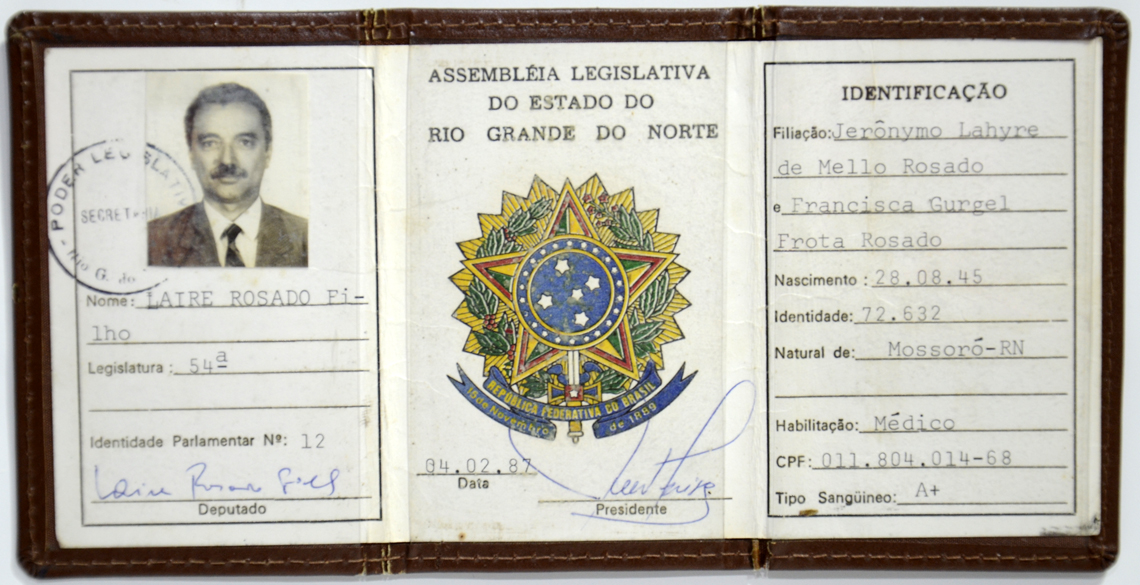 PODER LEGISLATIV
SECRET
Rio G. do
Nome: LAIRE ROSADO Fi-
lho
Legislatura: 54ª
Identidade Parlamentar Nº: 12
Laire Rosado Filho
Deputado
ASSEMBLÉIA LEGISLATIVA
DO ESTADO DO
RIO GRANDE DO NORTE
REPÚBLICA FEDERATIVA DO BRASIL
15 de Novembro de 1889
04.02.87
Data
Presidente
IDENTIFICAÇÃO
Filiação: Jerônymo Lahyre
de Mello Rosado
e Francisca Gurgel
Frota Rosado
Nascimento: 28.08.45
Identidade: 72.632
Natural de: Mossoró-RN
Habilitação: Médico
CPF: 011.804.014-68
Tipo Sangüineo: A+